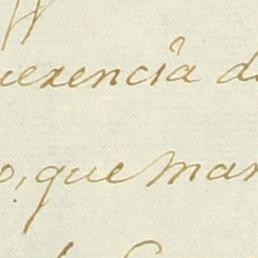 uerencia d
o, que man